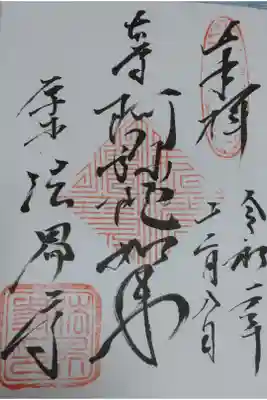 奉拝
令和二年
二月八日
阿弥陀如来
法界寺